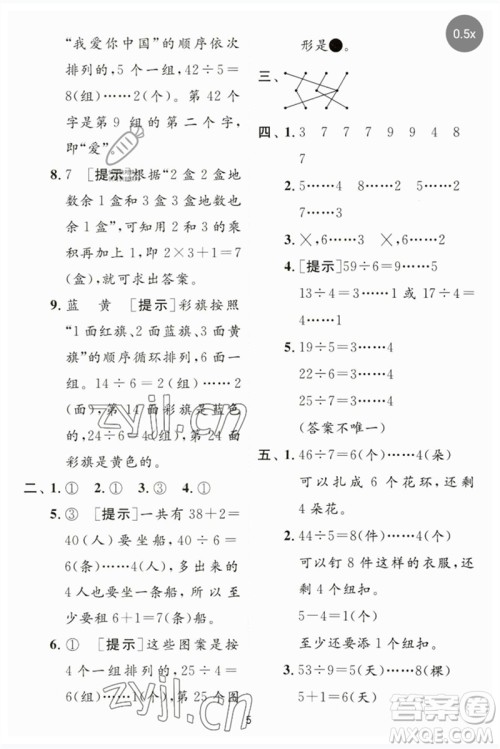 “我爱你中国”的顺序依次
排列的，5 个一组，42÷5＝
8(组)……2(个)。第 42 个
字是第 9 组的第二个字，
即“爱”。
8. 7 [提示]根据“2 盒 2 盒地
数余 1 盒和 3 盒 3 盒地数也
余 1 盒”，可知用 2 和 3 的乘
积再加上 1，即 2×3＋1＝7
(盒)，就可求出答案。
9. 蓝 黄 [提示]彩旗按照
“1 面红旗、2 面蓝旗、3 面黄
旗”的顺序循环排列，6 面彩
旗一组。14÷6＝2(组)……2
(面)，第 14 面彩旗是蓝色
的，24÷6＝4(组)，第 24 面
彩旗是黄色的。
二、1. ① 2. ① 3. ② 4. ①
5. ③ [提示]一共有 38＋2＝
40(人)要坐船，40÷6＝6
(条)……4(人)，多出来的 4
人还要坐一条船，所以一共
租 6＋1＝7(条)船。
6. ① [提示]这些图案是按
4 个一组排列的，25÷4＝6
(组)……1(个)，第 25 个图
形是●。
三、
四、1. 3 7 7 7 9 9 4 8
7
2. 5……5 7……4 8……7
6……1 9……1 5……8
3. ╳，6……4 ╳，6……4
4. [提示]59÷6＝9……5
13÷4＝3……1 17÷4＝
4……1
5. 19÷5＝3……4
24÷5＝4……4
34÷5＝6……4
39÷5＝7……4
(答案不唯一)
五、1. 46÷7＝6(个)……4(朵)
可以扎成 6 个花环，还剩
4 朵花。
2. 44÷5＝8(件)……4(个)
可以钉 8 件这样的衣服，还
剩 4 个纽扣。
5－4＝1(个)
至少还要添 1 个纽扣。
3. 53÷9＝5(天)……8(棵)
5＋1＝6(天)
5
0.5x
zyjl.cn
zyjl.cn
作业精灵
MXQE.COM